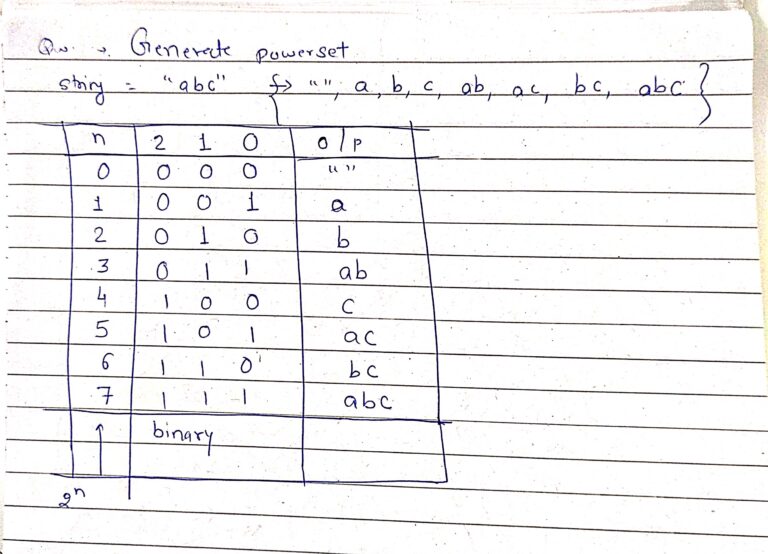 Qn. Generate powerset
string = "abc" { → "", a, b, c, ab, ac, bc, abc }
n 2 1 0 o/p
0 0 0 0 " "
1 0 0 1 a
2 0 1 0 b
3 0 1 1 ab
4 1 0 0 c
5 1 0 1 ac
6 1 1 0 bc
7 1 1 1 abc
↑ binary
2ⁿ